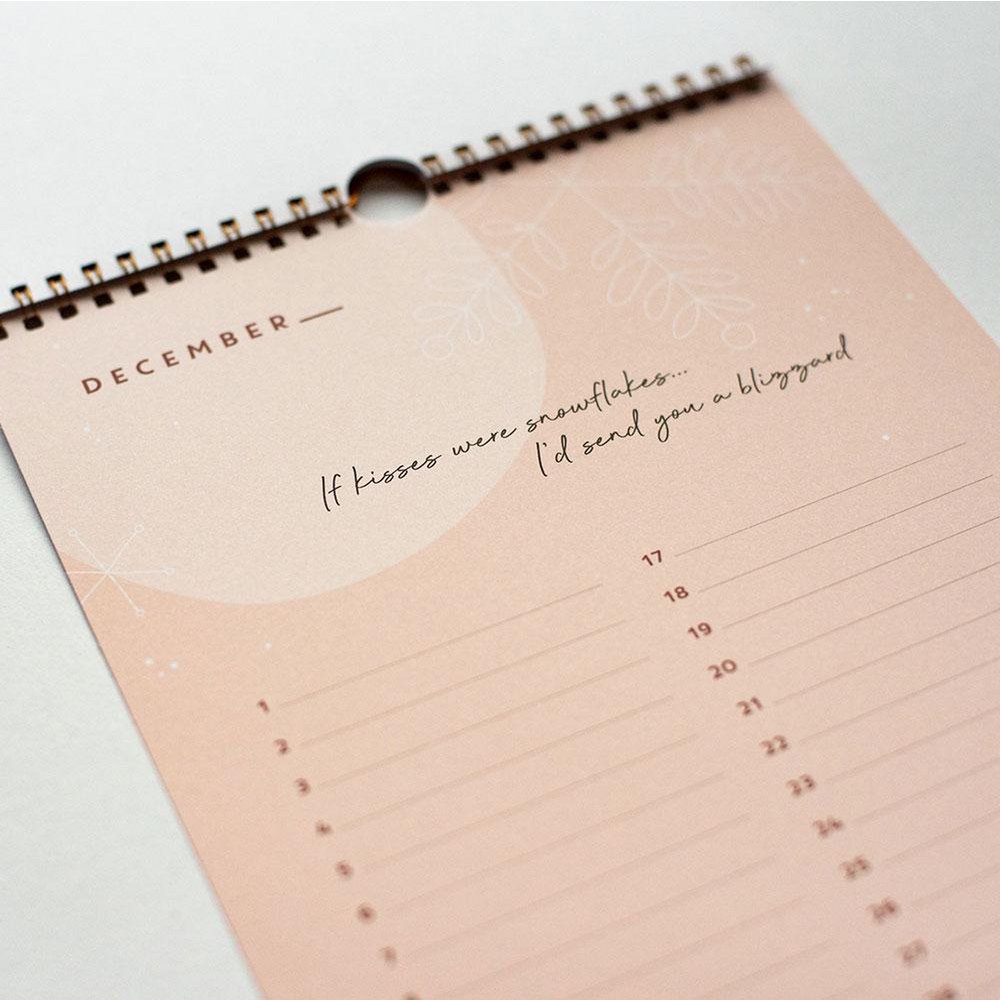 DECEMBER —
If kisses were snowflakes...
I'd send you a blizzard
1
2
3
4
5
6
7
17
18
19
20
21
22
23
24
25
26
27